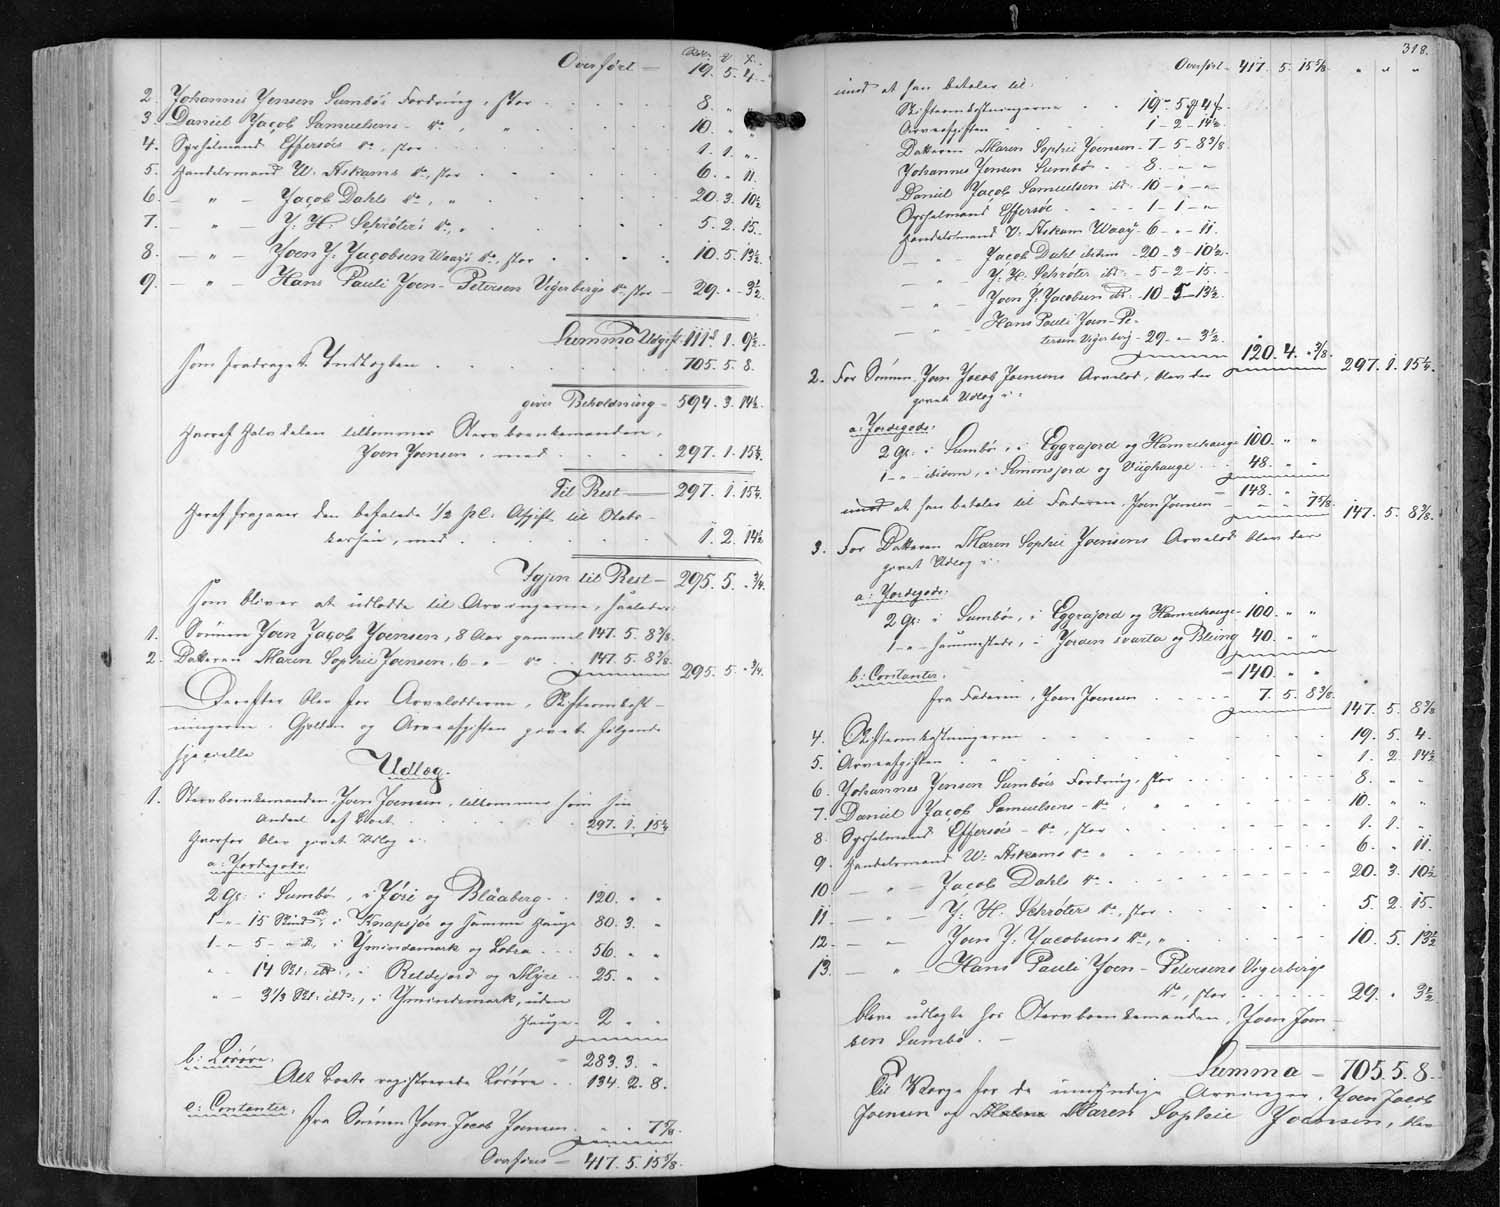 Overført — 19. 5. 4.
2. Johannes Jensen Sumbøs Fordring, stor . . . . 8. " "
3. Daniel Jacob Samuelsens — do, " . . . . 10. " "
4. Sysselmand Effersøes do, stor . . . . 1. 1. "
5. Handelsmand W. Askams do, stor . . . . 6. " 11.
6. — " — Jacob Dahls do, " . . . . 20. 3. 10½
7. — " — J. H. Schrøters do, " . . . . 5. 2. 15.
8. — " — Joen J. Jacobsen Waags do, stor . . . . 10. 5. 13½
9. — " — Hans Pauli Joen-Petersen Vegerbergs do, stor — 29. " 3½
Summa Udgift 111 1. 9½
Som fradraget Indtægten . . . . 705. 5. 8.
giver Beholdning — 594. 3. 14½
Heraf Halvdelen tilkommer Stervboenkemanden,
Joen Joensen, med . . . . 297. 1. 15¼
Til Rest — 297. 1. 15¼
Heraf fragaaer den befalede ½ pC. Afgift til Stats-
kassen, med . . . . 1. 2. 14½
Igjen til Rest — 295. 5. " ¾.
som bliver at udlodde til Arvingerne, saaledes:
1. Sønnen Joen Jacob Joensen, 8 Aar gammel 147. 5. 8 3/8.
2. Datteren Maren Sophie Joensen, 6 " — do . . 147. 5. 8 3/8. 295. 5. " ¾.
Derefter blev for Arvelodderne, Skifteomkost-
ningerne, Gjælden og Arveafgiften givet følgende
specielle
Udlæg.
1. Stervboenkemanden, Joen Joensen, tilkommer som sin
Andeel af Boet . . . . 297. 1. 15¼
Herfor blev givet Udlæg i:
a: Jordegods:
2 Gr. i Sumbø, i Jøri og Blåaberg . . 120. " "
1 — " 15 Skind ibd., i Knapsjør og Hamre Hauge 80. 3. "
1 — " 5 — " — ibd., i Ymindamark og Lobra . . . 56. " "
" — 14 Sk: ibd:, i Reldejord og Myre . . 25. " "
" — 3⅓ Sk: ibd:, i Ymindemark, uden
Hauge . . 2 " "
283. 3. "
b: Løsøre.
Alt Boets registrerede Løsøre . . 134. 2. 8.
c: Contanter.
fra Sønnen Joen Jacob Joensen . . " . 7 5/8.
Overføres — 417. 5. 15 5/8.
318.
Overført — 417. 5. 15 5/8. " " "
imod at han betaler til:
Skifteomkostningerne . . 19 — 5 4
Arveafgiften . . 1 — 2 — 14½
Datteren Maren Sophie Joensen — 7 — 5 — 8 3/8.
Johannes Jensen Sumbø . . 8. — " — "
Daniel Jacob Samuelsen ibd: 10 — " — "
Sysselmand Effersøe . . . 1 — 1 — "
Handelsmand W: Askam Waag — 6 — " — 11.
— " — Jacob Dahl ibidem — 20 — 3 — 10½
— " — J. H. Schrøter ibd: — 5 — 2 — 15.
— " — Joen J. Jacobsen ibd: — 10 — 5 — 13½
— " — Hans Pauli Joen-Pe-
tersen Vegerberg — 29. — " — 3½. 120. 4. " 3/8. 297. 1. 15¼.
2. For Sønnen Joen Jacob Joensens Arvelod, blev der
givet Udlæg i:
a: Jordegods:
2 Gr: i Sumbø, i Eggrajord og Hamrehauge 100. " "
1 — " — ibidem, i Simonsjord og Viighauge . . . 48. " "
— 148. " "
imod at han betaler til Faderen, Joen Joensen — " — " — 7 5/8. 147. 5. 8 3/8.
3. For Datteren Maren Sophie Joensens Arvelod blev der
givet Udlæg i:
a: Jordegods:
2 Gr: i Sumbø, i Eggrajord og Hamrehauge — 100. " "
1 — " — sammesteds, i Jorden svarta og Bleing 40. " "
— 140. " "
b: Contanter.
fra Faderen, Joen Joensen . . . . 7. 5. 8 3/8. 147. 5. 8 3/8.
4. Skifteomkostningerne . . . . 19. 5. 4.
5. Arveafgiften . . . . 1. 2. 14½
6. Johannes Jensen Sumbøs Fordring, stor . . . . 8. " "
7. Daniel Jacob Samuelsens — do, " . . . . 10. " "
8. Sysselmand Effersøes — do, stor . . . . 1. 1. "
9. Handelsmand W: Askams do " . . . . 6. " 11.
10. — " — Jacob Dahls do . . . . 20. 3. 10½
11. — " — J. H. Schrøters do, stor . . . . 5. 2. 15.
12. — " — Joen J. Jacobsens do, " . . . . 10. 5. 13½
13. — " — Hans Pauli Joen-Petersens Vegerbergs
do, stor . . . . 29. " 3½
bleve udlagte hos Stervboenkemanden, Joen Joen-
sen Sumbø. —
Summa — 705. 5. 8.
Til Værge for de umyndige Arvinger, Joen Jacob
Joensen og Maren Sophie Joensen, blev